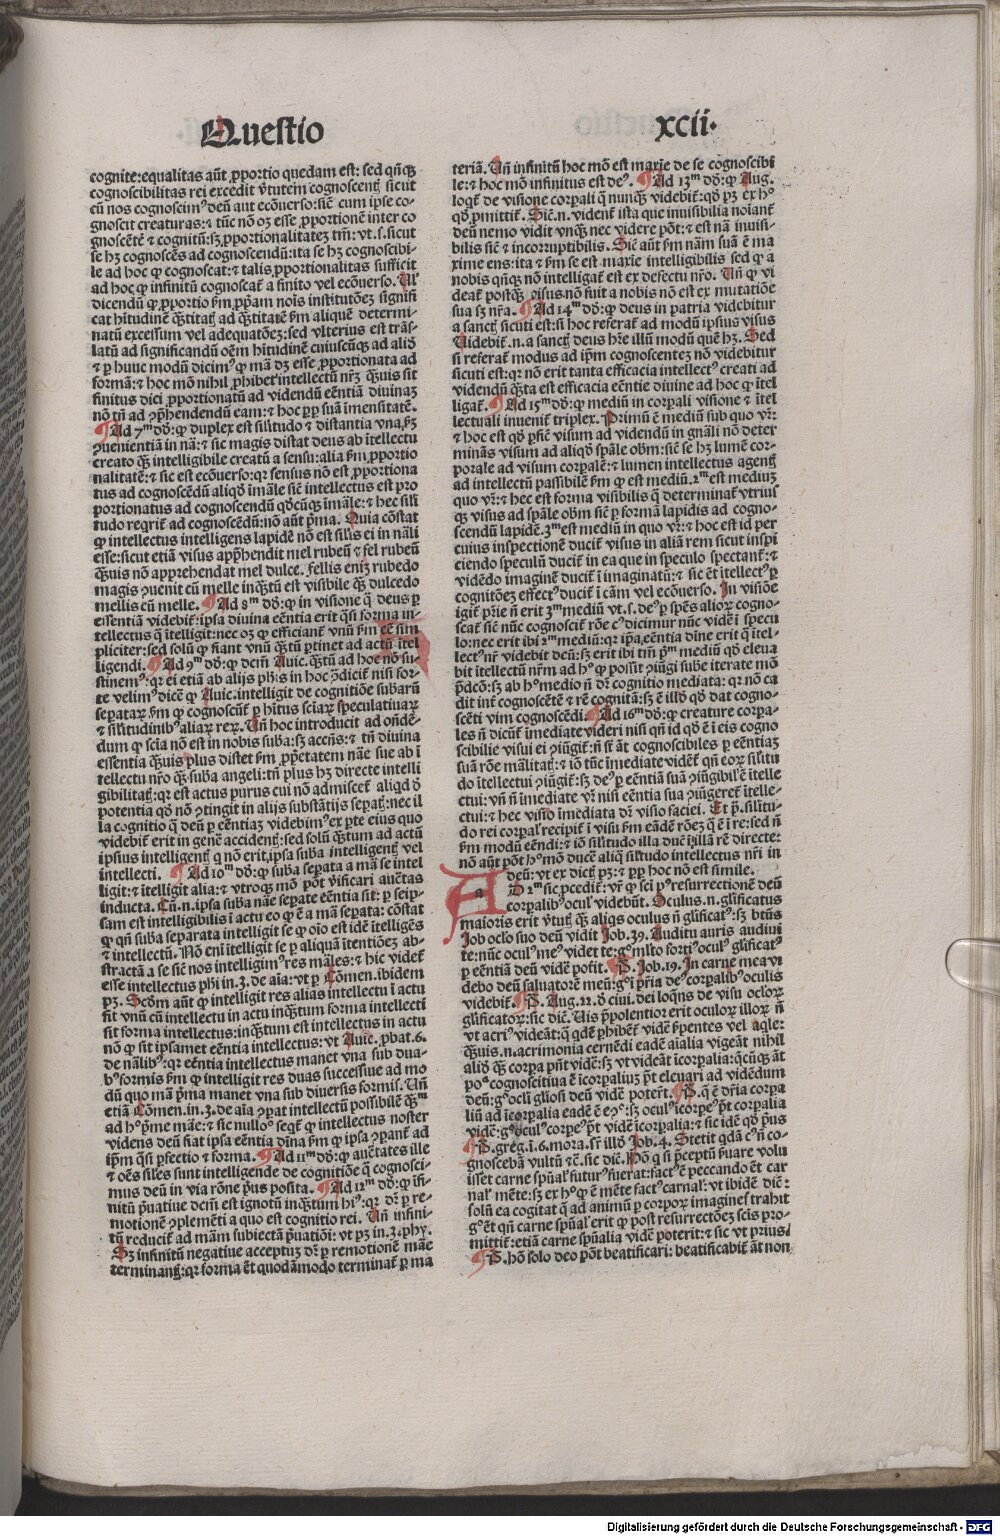 Questio
xcii.
cognite: equalitas aūt ꝓportio quedam est: sed qn̄qꝫ
cognoscibilitas rei excedit v̓tutem cognoscentꝭ sicut
cū nos cognoscimꝰ deū aut ecōuerso: sic̄ cum ipse co-
gnoscit creaturas: ⁊ tūc nō oꝫ esse ꝓportionē inter co
gnoscētē ⁊ cognitū: sꝫ ꝓportionalitateꝫ tm̄: vt .s. sicut
se hꝫ cognoscēs ad cognoscendū: ita se hꝫ cognoscibi-
le ad hoc ꝙ cognoscat̄: ⁊ talis ꝓportionalitas sufficit
ad hoc ꝙ infinitū cognoscat̄ a finito vel ecōuerso. Ul̓
dicendū ꝙ ꝓportio ẜm ꝓpriam nois institutōeꝫ signifi
cat hitudinē q̄ꝫtitatꝭ ad q̄ꝫtitatē ẜm aliquē determi-
natū excessum vel adequatōeꝫ: sed vlterius est trās-
latū ad significandū oēm hitudinē cuiuscūqꝫ ad aliđ
⁊ ꝑ huuc modū dicimꝰ ꝙ mā dꝫ esse ꝓportionata ad
formā: ⁊ hoc mō nihil ꝓhibet intellectū nr̄ꝫ q̄ꝫuis sit
finitus dici ꝓportionatū ad videndū eēntiā diuinaꝫ
nō tn̄ ad ꝯp̄hendendū eam: ⁊ hoc ꝓp̱ suā imensitatē.
¶ Ad 7ᵐ dd̄: ꝙ duplex est silitudo ⁊ distantia vna ẜꝫ
ꝯuenientiā in nā: ⁊ sic magis distat deus ab itellectu
creato q̄ꝫ intelligibile creatū a sensu: alia ẜm ꝓportio
nalitatē: ⁊ sic est ecōuerso: qꝛ sensus nō est ꝓportiona
tus ad cognoscēdū aliqđ imāle sic̄ intellectus est pro
portionatus ad cognoscendū qđcūqꝫ imāle: ⁊ hec sili
tudo reqrit̄ ad cognoscēdū: nō aūt p̄ma. Quia cōstat
ꝙ intellectus intelligens lapidē nō est silis ei in nāli
esse: sicut etiā visus app̄hendit mel rubeū ⁊ fel rubeū
q̄ꝫuis nō apprehendat mel dulce. fellis eniꝫ rubedo
magis ꝯuenit cū melle inqꝫtū est visibile q̄ꝫ dulcedo
mellis cū melle. ¶ Ad 8ᵐ dd̄: ꝙ in visione q̄ deus ꝑ
essentiā videbit̄: ipsa diuina eēntia erit q̄si forma in-
tellectus q̄ itelligit: nec oꝫ ꝙ efficiant̄ vnū ẜm eē sim
pliciter: sed solū ꝙ fiant vnū q̄ꝫtū ꝑtinet ad actū itel
ligendi. ¶ Ad 9ᵐ dd̄: ꝙ dcm̄ Auic. q̄ꝫtū ad hoc nō su-
stinemꝰ: qꝛ ei etiā ab alijs phis in hoc ꝯdicit̄ nisi for-
te velimꝰ dicē ꝙ Auic. intelligit de cognitiōe subarū
sepataꝝ ẜm ꝙ cognoscūt̄ ꝑ hitus sciaꝝ speculatiuaꝝ
⁊ silitudinibꝰ aliaꝝ reꝝ. Un̄ hoc introducit ad ondē-
dum ꝙ scia nō est in nobis suba: sꝫ accn̄s: ⁊ tn̄ diuina
essentia q̄ꝫuis plus distet ẜm ꝓp̱etatem nāe sue ab i
tellectu nr̄o q̄ꝫ suba angeli: tn̄ plus hꝫ directe intelli
gibilitatꝭ: qꝛ est actus purus cui nō admiscet̄ aliqd đ
potentia qđ nō ꝯtingit in alijs substātijs sepatꝭ: nec il
la cognitio q̄ deū ꝑ eēntiaꝫ videbimꝰ ex ꝑte eius quo
videbit̄ erit in genē accidentꝭ: sed solū q̄ꝫtum ad actū
ipsius intelligentꝭ q nō erit ipsa suba intelligentꝭ vel
intellecti. ¶ Ad 10ᵐ dd̄: ꝙ suba sepata a mā se intel
ligit: ⁊ itelligit alia: ⁊ vtroqꝫ mō pōt v̓ificari auctas
inducta. Cū .n. ipsa suba nāe sepate eēntia sit: ꝑ seip-
sam est intelligibilis i actu eo ꝙ ē a mā sepata: cōstat
ꝙ qn̄ suba separata intelligit se ꝙ oio est idē itelligēs
⁊ intellectū. Nō eni itelligit se ꝑ aliquā itentiōeꝫ ab-
stractā a se sic̄ nos intelligimꝰ res māles: ⁊ hic videt̄
esse intellectus phi in .3. de aia: vt ꝑ Cōmen. ibidem
pꝫ. Scđm aūt ꝙ intelligit res alias intellectū i actu
fit vnū cū intellectu in actu inqꝫtum forma intellecti
fit forma intellectus: inqꝫtum est intellectus in actu
nō ꝙ sit ipsamet eēntia intellectus: vt Auic. ꝓbat .6.
de nālibꝰ: qꝛ eēntia intellectus manet vna sub dua-
bꝰ formis ẜm ꝙ intelligit res duas successiue ad mo
dū quo mā p̄ma manet vna sub diuersis formis. Un̄
etiā Cōmen. in .3. de aia ꝯpat intellectū possibilē q̄ꝫᵐ
ad hꝰ p̄me māe: ⁊ sic nulloꝰ seqt̄ ꝙ intellectus noster
videns deū fiat ipsa eēntia dīna ẜm ꝙ ipsa ꝯpant̄ ad
ip̄m q̄si ꝑfectio ⁊ forma. ¶ Ad 11ᵐ dd̄: ꝙ auētates ille
⁊ oēs siles sunt intelligende de cognitiōe q̄ cognosci-
mus deū in via rōne p̄us posita. ¶ Ad 12ᵐ dd̄: ꝙ ifi-
nitū p̄uatiue dcm̄ est ignotū inqꝫtum hiꝰ: qꝛ dr̄ ꝑ re-
motionē ꝯplemēti a quo est cognitio rei. Un̄ infini-
tū reducit̄ ad mām subiectā p̄uatiōi: vt pꝫ in .3. phy.
Sꝫ infinitū negatiue acceptuꝫ dr̄ ꝑ remotionē māe
terminantꝭ: qꝛ forma ēt quodāmodo terminat̄ ꝑ ma
teriā. Un̄ infinitū hoc mō est maxīe de se cognoscibi
le: ⁊ hoc mō infinitus est deꝰ. ¶ Ad 13ᵐ dd̄: ꝙ Aug.
loqt̄ de visione corꝑali q̄ nunqꝫ videbit̄: qđ pꝫ ex hꝰ
qđ p̄mittit̄. Sic̄ .n. vident̄ ista que inuisibilia noiant̄
deū nemo vidit vnqꝫ nec videre pōt: ⁊ est nā inuisi-
bilis sic̄ ⁊ incorruptibilis. Sic̄ aūt ẜm nām suā ē ma
xime ens: ita ⁊ ẜm se est maxīe intelligibilis sed ꝙ a
nobis qn̄qꝫ nō intelligat̄ est ex defectu nr̄o. Un̄ ꝙ vi
deat̄ postqꝫ visus nō fuit a nobis nō est ex mutatiōe
sua sꝫ nr̄a. ¶ Ad 14ᵐ dd̄: ꝙ deus in patria videbitur
a sanctꝭ sicuti est: si hoc referat̄ ad modū ipsius visus
Uidebit̄ .n. a sanctꝭ deus hr̄e illū modū quē hꝫ. Sed
si referat̄ modus ad ip̄m cognoscenteꝫ nō videbitur
sicuti est: qꝛ nō erit tanta efficacia intellectꝰ creati ad
videndū q̄ꝫta est efficacia eēntie diuine ad hoc ꝙ itel
ligat̄. ¶ Ad 15ᵐ dd̄: ꝙ mediū in corꝑali visione ⁊ itel
lectuali inuenit̄ triplex. Primū ē mediū sub quo vr̄:
⁊ hoc est qđ ꝑfic̄ visum ad videndū in gnāli nō deter
minās visum ad aliqđ spāle obm: sic̄ se hꝫ lumē cor-
porale ad visum corꝑalē: ⁊ lumen intellectus agentꝭ
ad intellectū passibilē ẜm ꝙ est mediū. 2ᵐ est mediuꝫ
quo vr̄: ⁊ hec est forma visibilis q̄ determinat̄ vtriuſ
qꝫ visus ad spāle obm sic̄ ꝑ formā lapidis ad cogno-
scendū lapidē. 3ᵐ est mediū in quo vr̄: ⁊ hoc est id per
cuius inspectionē ducit̄ visus in aliā rem sicut inspi
ciendo speculū ducit̄ in ea que in speculo spectant̄: ⁊
vidēdo imaginē ducit̄ i imaginatū: ⁊ sic ēt itellectꝰ ꝑ
cognitōeꝫ effectꝰ ducit̄ i cām vel ecōuerso. In visiōe
igit̄ pr̄ie n̄ erit 3ᵐ mediū vt .s. deꝰ ꝑ spēs alioꝝ cogno-
scat̄ sic̄ nūc cognoscit̄ rōe cꝰ dicimur nūc vidē i specu
lo: nec erit ibi 2ᵐ mediū: qꝛ ip̄a eēntia dīne erit q̄ itel-
lectꝰ nr̄ videbit deū: sꝫ erit ibi tm̄ p̄ᵐ mediū qđ eleua
bit itellectū nr̄m ad hꝰ ꝙ possit ꝯiūgi sube iterate mō
p̄dcō: sꝫ ab hꝰ medio n̄ dr̄ cognitio mediata: qꝛ nō ca
dit int̄ cognoscētē ⁊ rē cognitā: sꝫ ē illđ qđ dat cogno-
scēti vim cognoscēdi. ¶ Ad 16ᵐ dd̄: ꝙ creature corꝑa-
les n̄ dicūt̄ imediate videri nisi qn̄ id qđ ē i eis cogno
scibilie visui ei ꝯiūgit̄: n̄ st̄ āt cognoscibiles ꝑ eēntiaꝫ
suā rōe mālitatꝭ: ⁊ iō tūc imediate vidēt̄ qn̄ eoꝝ silitu
do itellectui ꝯiūgit̄: sꝫ deꝰ ꝑ eēntiā suā ꝯiūgibilꝭ ē itelle
ctui: vn̄ n̄ imediate vr̄ nisi eēntia sua ꝯiūgeret̄ itelle-
ctui: ⁊ hec visio imediata dr̄ visio faciei. Et p̄. silitu-
do rei corꝑal̓ recipit̄ i visu ẜm eādē rōeꝫ q̄ ē i re: sed n̄
ẜm modū eēndi: ⁊ iō silitudo illa ducit i illā rē directe:
nō aūt pōt hꝰ mō ducē aliqͥ silitudo intellectus nr̄i in
deū: vt ex dictꝭ pꝫ: ⁊ ꝓp̱ hoc nō est simile.
AD 2ᵐ sic ꝓcedit̄: vr̄ ꝙ sci pꝰ resurrectionē deū
a
corꝑalibꝰ ocul̓ videbūt. Oculus .n. glificatus
maioris erit v̓tutꝭ q̄ꝫ aliqs oculus n̄ glificatꝰ: sꝫ btūs
Job oclo suo deū vidit Job .39. Auditu auris audiui
te: nūc oculꝰ meꝰ videt te: gͦ mlto fortiꝰ oculꝰ glificatꝰ
ꝑ eēntiā deū vidē poterit. ¶ P̄. Job .19. In carne mea vi
debo deū saluatorē meū: gͦ i pr̄ia deꝰ corꝑalibꝰ oculis
videbit̄. ¶ P̄. Aug. 22. đ ciui. dei loqn̄s de visu ocloꝝ
glificatoꝝ: sic dic̄. Uis p̄polentior erit oculoꝝ illoꝝ n̄
vt acriꝰ videāt: qͣ qdē ꝑhibēt̄ vidē ẜpentes vel aqle:
q̄ꝫuis .n. acrimonia cernēdi eadē aialia vigeāt nihil
aliđ q̄ꝫ corꝑa pn̄t vidē: sꝫ vt videāt icorꝑalia: qͥcūqꝫ āt
poͣ cognoscitiua ē icorꝑaliuꝫ p̄t eleuari ad vidēdum
deū: gͦ ocli gliosi deū vidē poterit. ¶ P̄. q̄ ē dr̄ia corꝑa
liū ad icorꝑalia eadē ē eꝯͦ: sꝫ oculꝰ icorꝑeꝰ p̄t corꝑalia
vidē: gͦ oculꝰ corꝑeꝰ p̄t vidē icorꝑalia: ⁊ sic idē qđ p̄us
¶ P̄. greg. i .6. mora. sr̄ illđ Job .4. Stetit qdā cꝰ n̄ co-
gnoscebā vultū ⁊c̄. sic dic̄. Hō q si p̄ceptū ẜuare volu
isset carne spūal̓ futurꝰ fuerat: factꝰ ē peccando ēt car
nal̓ mēte: sꝫ ex hꝰ ꝙ ē mēte factꝰ carnal̓: vt ibidē dic̄:
solū ea cogitat q̄ ad animū ꝑ corpoꝝ imagines trahit
gͦ ēt qn̄ carne spūal̓ erit ꝙ post resurrectōeꝫ scis pro-
mittit̄: etiā carne spūalia vidē poterit: ⁊ sic vt prius.
¶ P̄. hō solo deo pōt beatificari: beatificabit̄ āt non
Digitalisierung gefördert durch die Deutsche Forschungsgemeinschaft - DFG